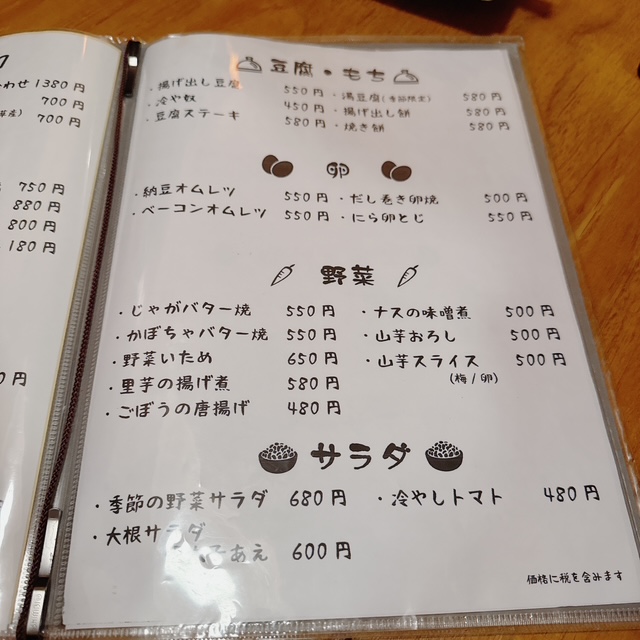 わせ 1380円
700円
産) 700円
750円
880円
800円
180円
円
豆腐・もち
・揚げ出し豆腐 550円
・冷や奴 450円
・豆腐ステーキ 580円
・湯豆腐(季節限定) 580円
・揚げ出し餅 580円
・焼き餅 580円
卵
・納豆オムレツ 550円
・ベーコンオムレツ 550円
・だし巻き卵焼 500円
・にら卵とじ 550円
野菜
・じゃがバター焼 550円
・かぼちゃバター焼 550円
・野菜いため 650円
・里芋の揚げ煮 580円
・ごぼうの唐揚げ 480円
・ナスの味噌煮 500円
・山芋おろし 500円
・山芋スライス 500円
(梅/卵)
サラダ
・季節の野菜サラダ 680円
・大根サラダ
あえ 600円
・冷やしトマト 480円
価格に税を含みます